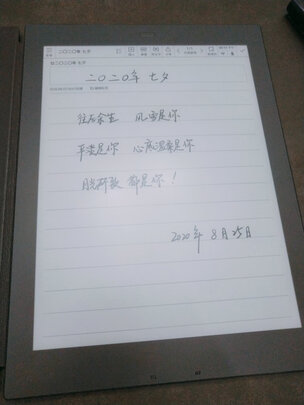 二〇二〇年 七夕
1/1
二〇二〇年 七夕
往后余生 风雪是你
平淡是你 心底温柔是你
目光所致 都是你!
2020年 8月25日